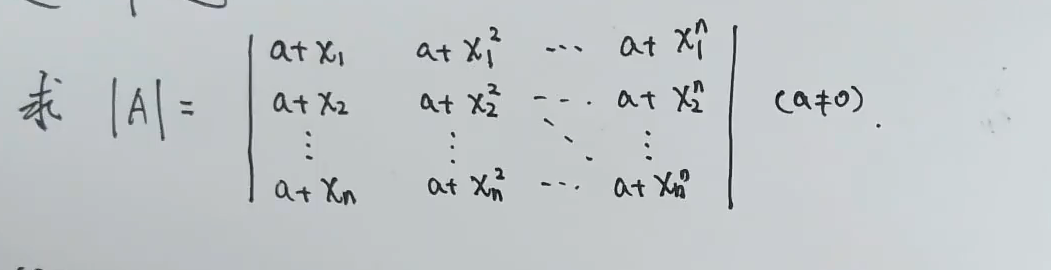 求 |A| = | a+x₁ a+x₁² ... a+x₁ⁿ |
| a+x₂ a+x₂² ... a+x₂ⁿ | (a≠0).
| ⋮ ⋮ ⋱ ⋮ |
| a+xₙ a+xₙ² ... a+xₙⁿ |